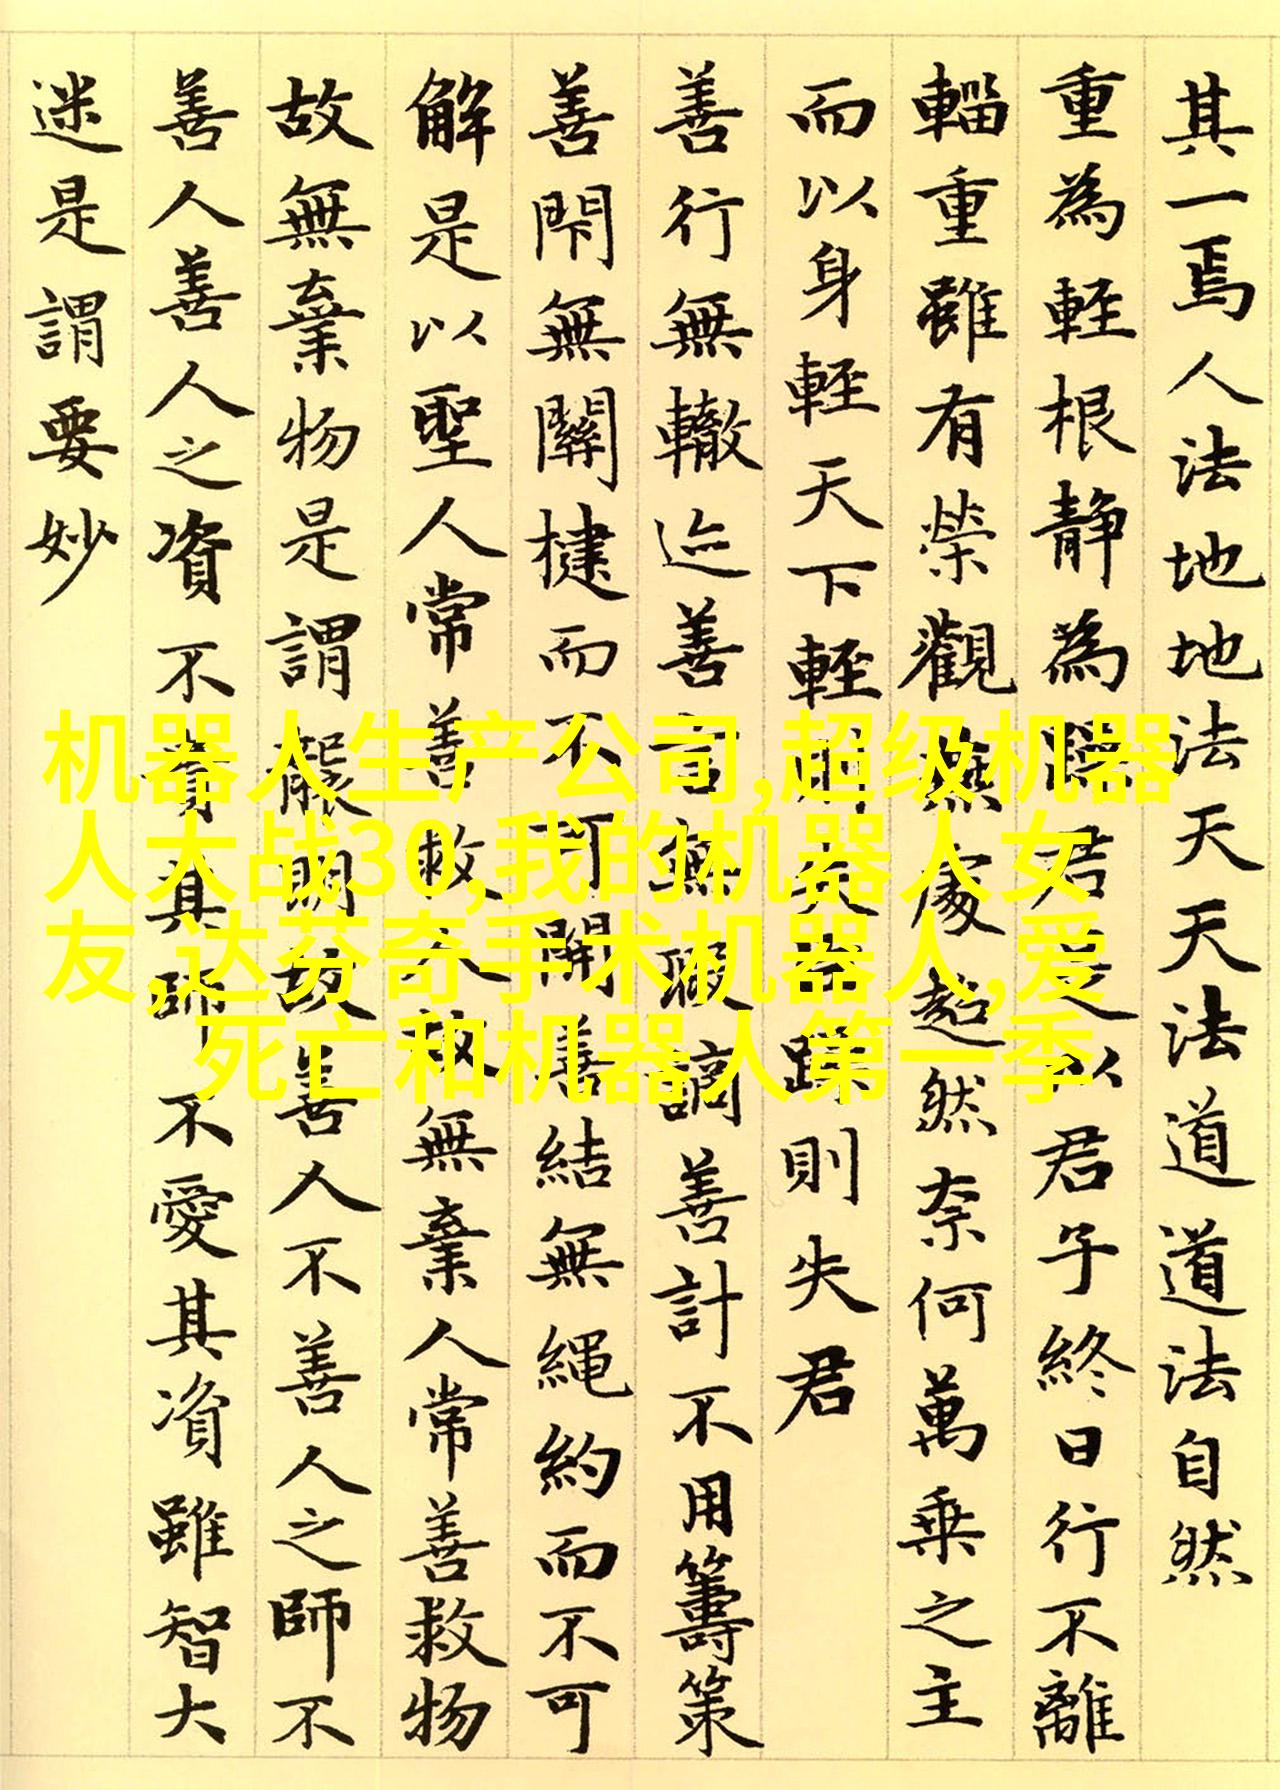 其一焉人法地地法天天法道道法自然
重為輕根靜為躁君是以君子終日行不離
輜重雖有榮觀燕處超然奈何萬乘之主
而以身輕天下輕則失本躁則失君
善行無轍迹善言無瑕謫善計不用籌策
善閇無關揵而不可開善結無繩約而不可
解是以聖人常善救人故無棄人常善救物
故無棄物是謂襲明故善人不善人之師不
善人善人之資不貴其師不愛其資雖智大
迷是謂要妙
机器人生产公司,超级机器
人大战30,我的机器人女
友,达芬奇手术机器人,爱
死亡和机器人第一季